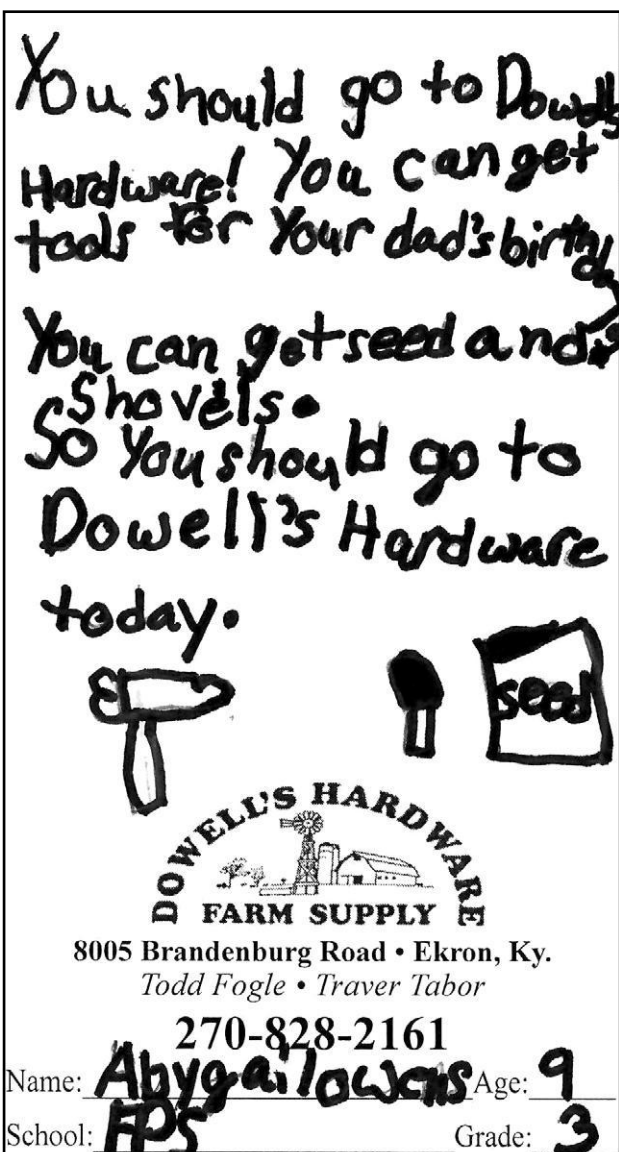 You should go to Dowell's
Hardware! You can get
tools for your dad's birthday.
You can get seed and
shovels.
So you should go to
Dowell's Hardware
today.
seed
DOWELL'S HARDWARE
FARM SUPPLY
8005 Brandenburg Road • Ekron, Ky.
Todd Fogle • Traver Tabor
270-828-2161
Name: Abygail Owens Age: 9
School: Grade: 3